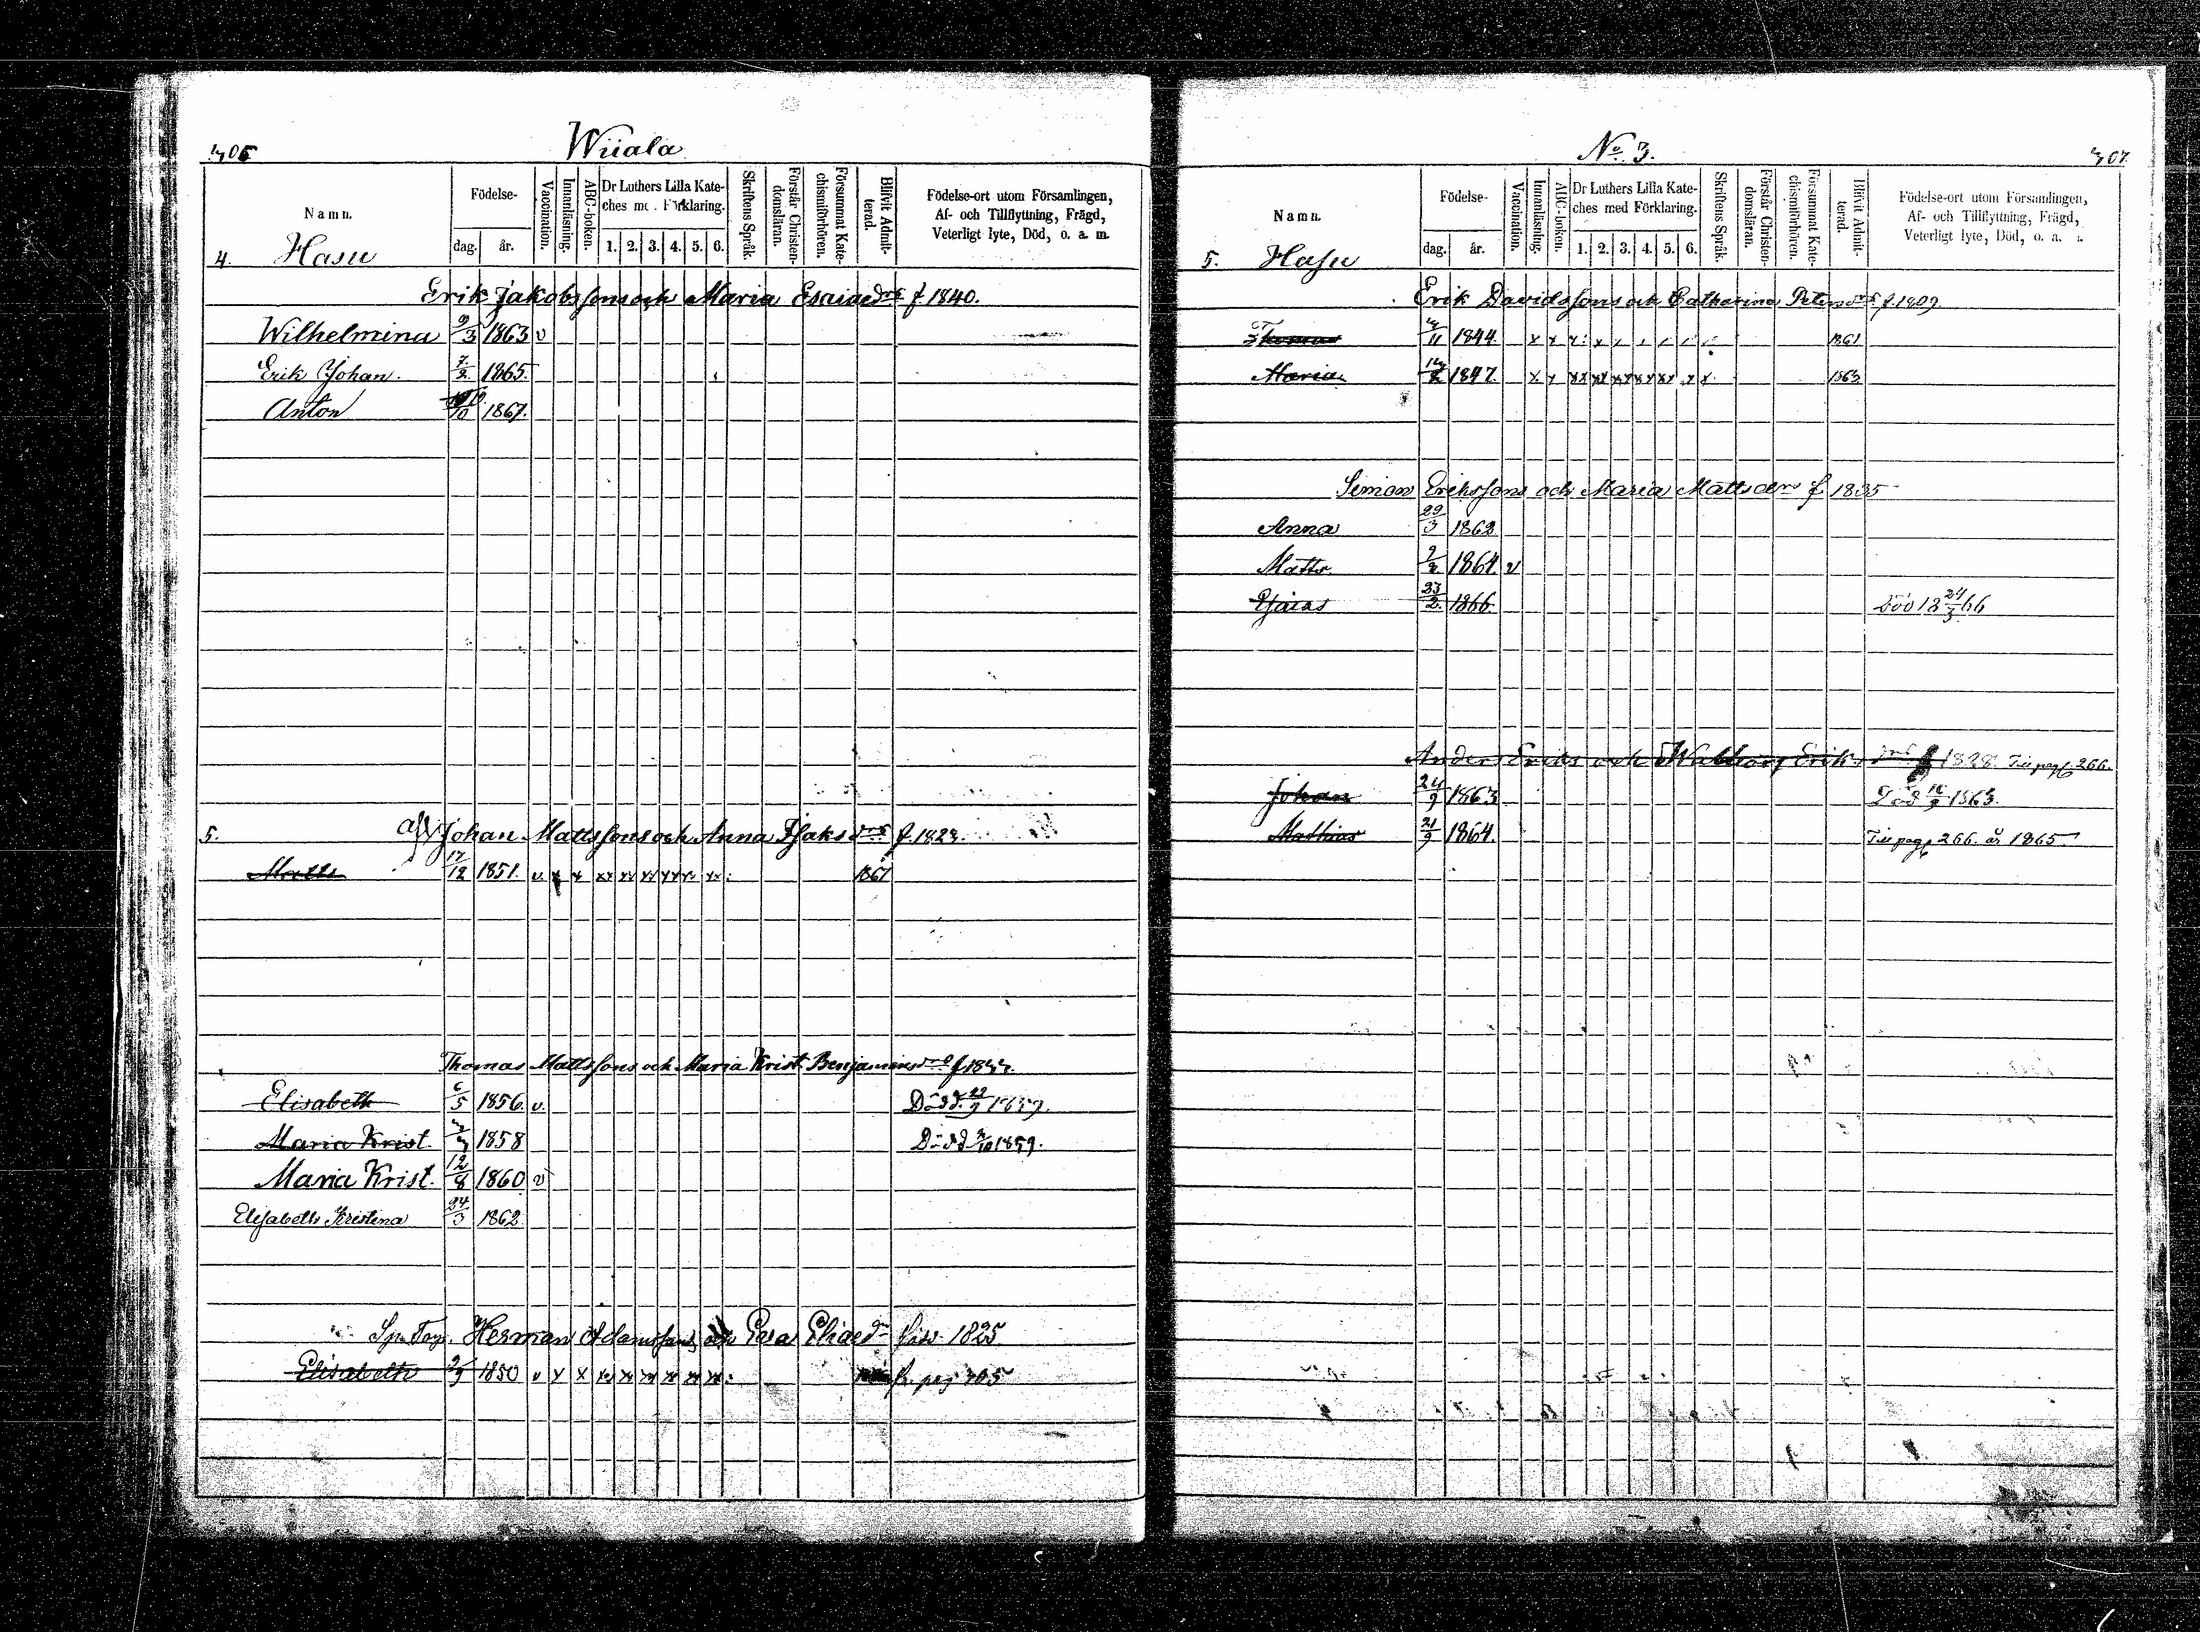 306
Wiiala
Namn.
Födelse-
dag.
år.
Vaccination.
Innanläsning.
ABC-boken.
Dr Luthers Lilla Kateches med Förklaring.
1. 2. 3. 4. 5. 6.
Skriftens Språk.
Förstår Christendomsläran.
Försummat Katechismiförhören.
Blifvit Admitterad.
Födelse-ort utom Församlingen,
Af- och Tillflyttning, Frägd,
Veterligt lyte, Död, o. a. m.
4. Hasu
Erik Jakobssons och Maria Esaiaedrs f 1840.
Wilhelmina 9/3 1863 v
Erik Johan. 7/2 1865
Anton 1867.
5. Johan Mattssons och Anna Isaksdrs f. 1823.
Matts 17/12 1851. v x x xx xx xx xx xx xx 1867
Thomas Mattssons och Maria Krist. Benjaminsdrs f
Elisabeth 6/5 1856. v. Död d.
Maria Krist 1858 Död d 1859.
Maria Krist. 12/8 1860 v
Elisabeth Kristina 24/3 1862
Herman Adamssons och Eva Eliaedr 1825
Elisabeth 1850 v x x xx xx xx xx xx xx
No 3.
307.
Namn.
Födelse-
dag.
år.
Vaccination.
Innanläsning.
ABC-boken.
Dr Luthers Lilla Kateches med Förklaring.
1. 2. 3. 4. 5. 6.
Skriftens Språk.
Förstår Christendomsläran.
Försummat Katechismiförhören.
Blifvit Admitterad.
Födelse-ort utom Församlingen,
Af- och Tillflyttning, Frägd,
Veterligt lyte, Död, o. a.
5. Hasu
Erik Davidssons och Catharina Petersdrs f. 1809
Thomas 1844. 1861
Maria 1847. 1863
Simon Erikssons och Maria Mattsdrs f 1835
Anna 29/3 1862
Matts 9/2 1864. v
Esaias 23/2 1866 Död 18 24/3 66
Anders Eriks och Walborg Eriks drs f 1828. Till pag 266.
Johan 24/9 1863 Död 1863.
Mathias 21/9 1864. Till pag 266. år 1865